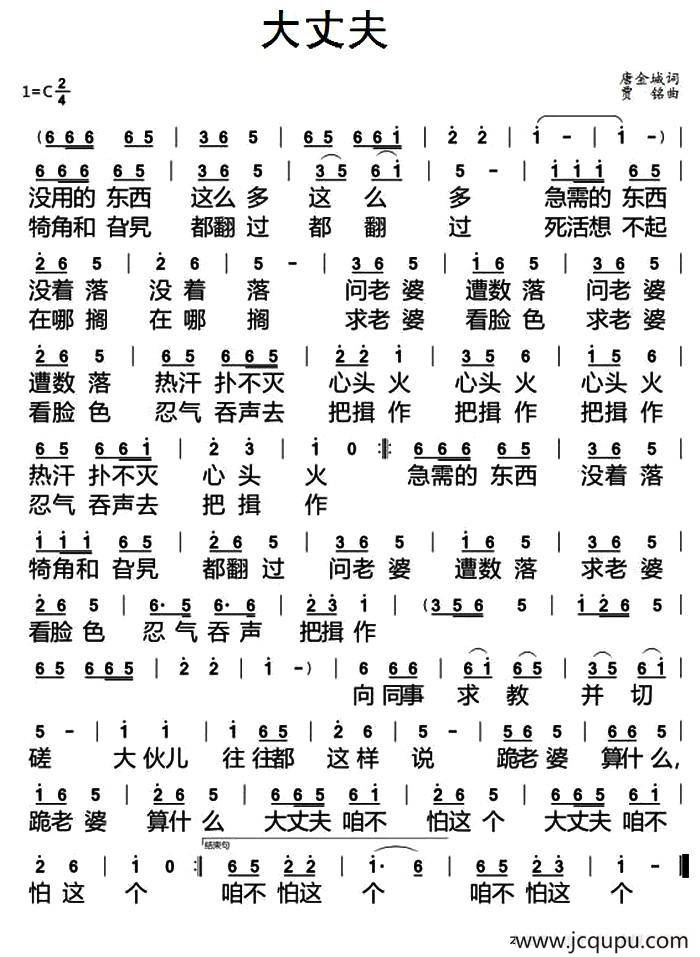 大丈夫
1=C 2/4
唐金城词
贾 铭曲
(6 6 6 6 5 | 3 6 5 | 6 6 5 6 6 1 | 2 2 | 1 - | 1 -)|
6 6 6 6 5 | 3 6 5 | 3 5 6 1 | 5 - | 1 1 1 6 5 |
没用的 东西 这么 多 这 么 多 急需的 东西
犄角和 旮旯 都翻 过 都 翻 过 死活想 不起
2 6 5 | 2 6 5 | 5 - | 3 6 5 | 3 6 5 | 3 6 5 |
没着 落 没 着 落 问老 婆 遭数 落 问老 婆
在哪 搁 在 哪 搁 求老 婆 看脸 色 求老 婆
2 6 5 | 6 5 6 6 5 | 2 2 1 | 3 5 6 | 1 5 6 |
遭数 落 热汗 扑不灭 心头 火 心头 火 心头 火
看脸 色 忍气 吞声去 把揖 作 把揖 作 把揖 作
6 5 6 6 1 | 2 3 | 1 0 :||: 6 6 6 6 5 | 2 6 5 |
热汗 扑不灭 心 头 火 急需的 东西 没着 落
忍气 吞声去 把 揖 作
1 1 1 6 5 | 2 6 5 | 3 6 5 | 3 6 5 | 3 6 5 |
犄角和 旮旯 都翻 过 问老 婆 遭数 落 求老 婆
2 6 5 | 6· 5 6· 6 | 2 3 1 | (3 5 6 5 | 1 2 6 5 |
看脸 色 忍 气 吞 声 把揖 作
6 5 6 6 5 | 2 2 | 1 -) | 6 6 6 | 6 1 5 | 3 5 6 1 |
向 同事 求 教 并 切
5 - | 1 1 | 1 6 5 | 2 6 5 | 5 6 5 | 3 6 5 |
磋 大 伙儿 往 往都 这样 说 跪老 婆 算什 么,
1 6 5 | 2 6 5 | 6 6 5 6 1 | 2 6 5 | 6 6 5 6 1 |
跪老 婆 算什 么 大丈夫 咱不 怕这 个 大丈夫 咱不
结束句
2 6 | 1 0 :| 6 5 2 2 | 1· 6 | 6 5 2 3 | 1 - ||
怕 这 个 咱不 怕这 个 咱不 怕这 个
www.jcqupu.com